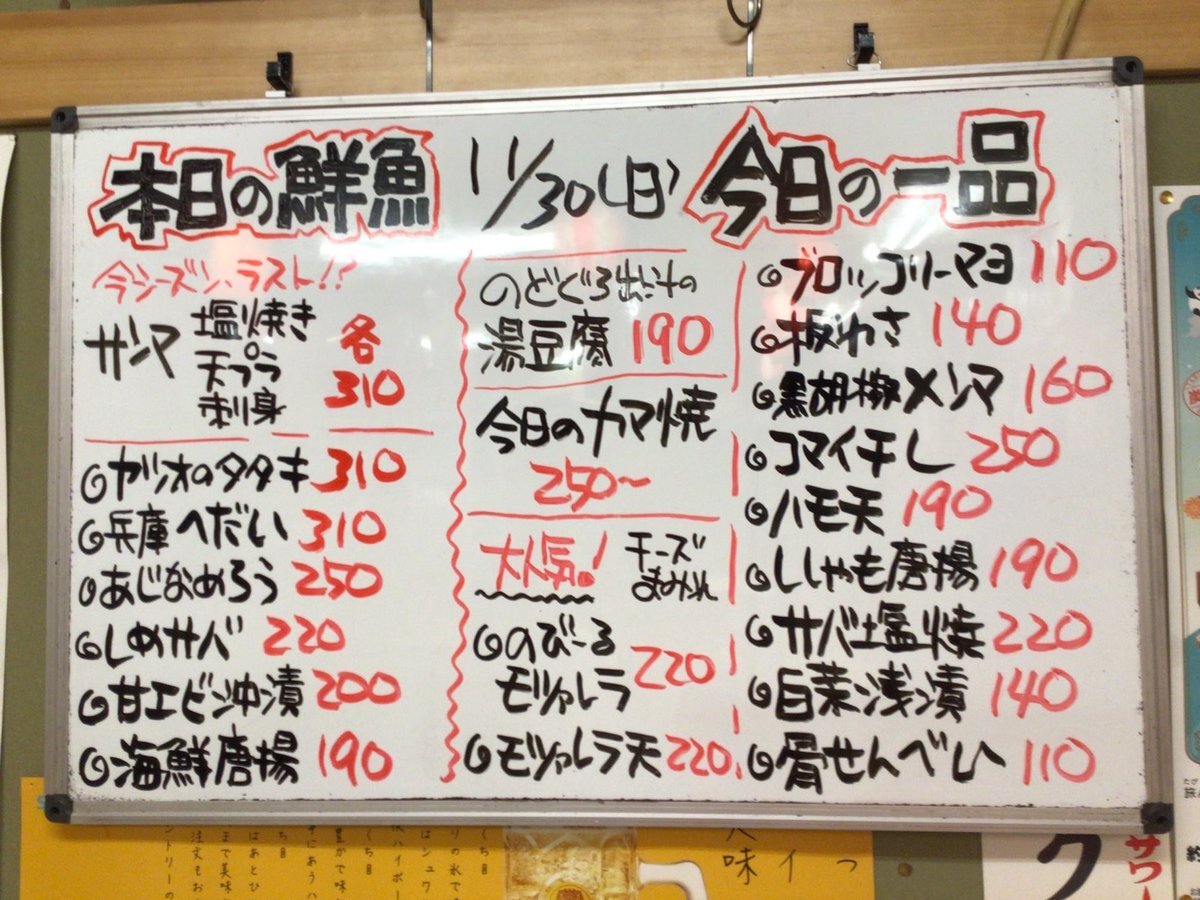 本日の鮮魚
11/30(日)
今日の一品
今シーズン、ラスト!?
サンマ
塩焼き
天プラ
刺身
各
310
カツオのタタキ 310
兵庫へだい 310
あじなめろう 250
しめサバ 220
甘エビ沖漬 200
海鮮唐揚 190
のどぐろ出汁の
湯豆腐 190
今日のカマ焼
250〜
大人気!
チーズ
まみれ
のびーる
モツァレラ 220
モツァレラ天 220
ブロッコリーマヨ 110
板わさ 140
黒胡椒メンマ 160
コマイ干し 250
ハモ天 190
ししゃも唐揚 190
サバ塩焼 220
白菜浅漬 140
骨せんべい 110
サワー
ク